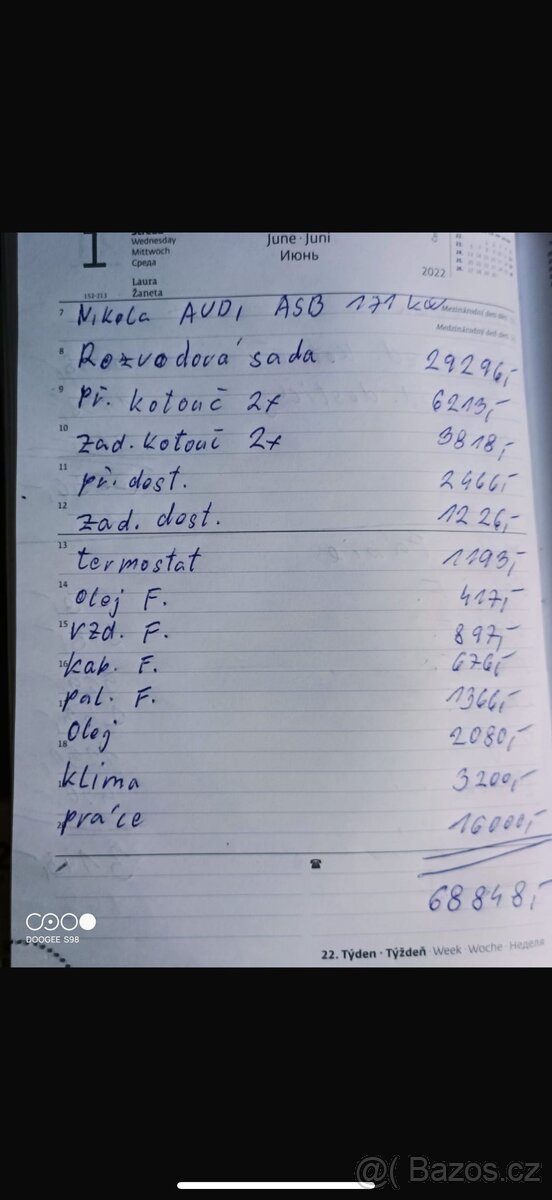 1
Wednesday
Mittwoch
Среда
Laura
Žaneta
152-213
June · Juni
Июнь
2022
7 Nikola AUDI ASB 171 kw
8 Rozvodová sada 29296,-
9 Př. kotouč 2x 6213,-
10 zad. kotouč 2x 3818,-
11 př. dest. 2466,-
12 zad. dest. 1226,-
13 termostat 1193,-
14 Olej F. 417,-
15 vzd. F. 897,-
16 kab. F. 676,-
pal. F. 1366,-
18 Olej 2080,-
klima 3200,-
práce 16000,-
68848,-
DOOGEE S98
22. Týden · Týždeň · Week · Woche · Неделя
@( Bazos.cz